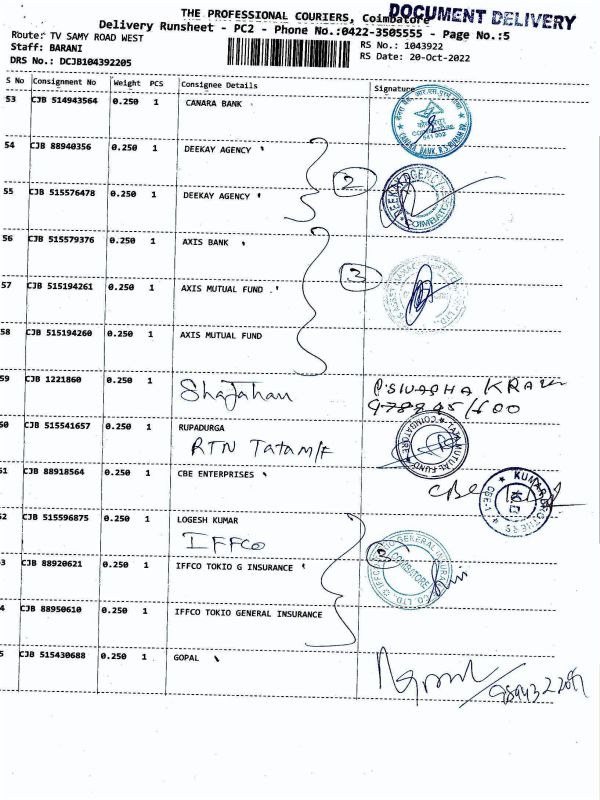 THE PROFESSIONAL COURIERS, Coimbatore
DOCUMENT DELIVERY
Delivery Runsheet - PC2 - Phone No.:0422-3505555 - Page No.:5
Route: TV SAMY ROAD WEST
RS No.: 1043922
Staff: BARANI
RS Date: 20-Oct-2022
DRS No.: DCJB104392205
S No Consignment No Weight PCS Consignee Details Signature
53 CJB 514943564 0.250 1 CANARA BANK
54 CJB 88940356 0.250 1 DEEKAY AGENCY
2
55 CJB 515576478 0.250 1 DEEKAY AGENCY
56 CJB 515579376 0.250 1 AXIS BANK
3
57 CJB 515194261 0.250 1 AXIS MUTUAL FUND
58 CJB 515194260 0.250 1 AXIS MUTUAL FUND
59 CJB 1221860 0.250 1
Shajahan
60 CJB 515541657 0.250 1 RUPADURGA
RTN Tata m/f
TATA MUTUAL FUND COIMBATORE
61 CJB 88918564 0.250 1 CBE ENTERPRISES
CBE
KUMAR BROTHERS CBE-1
62 CJB 515596875 0.250 1 LOGESH KUMAR
IFFCO
3
63 CJB 88920621 0.250 1 IFFCO TOKIO G INSURANCE
COIMBATORE
64 CJB 88950610 0.250 1 IFFCO TOKIO GENERAL INSURANCE
65 CJB 515430688 0.250 1 GOPAL